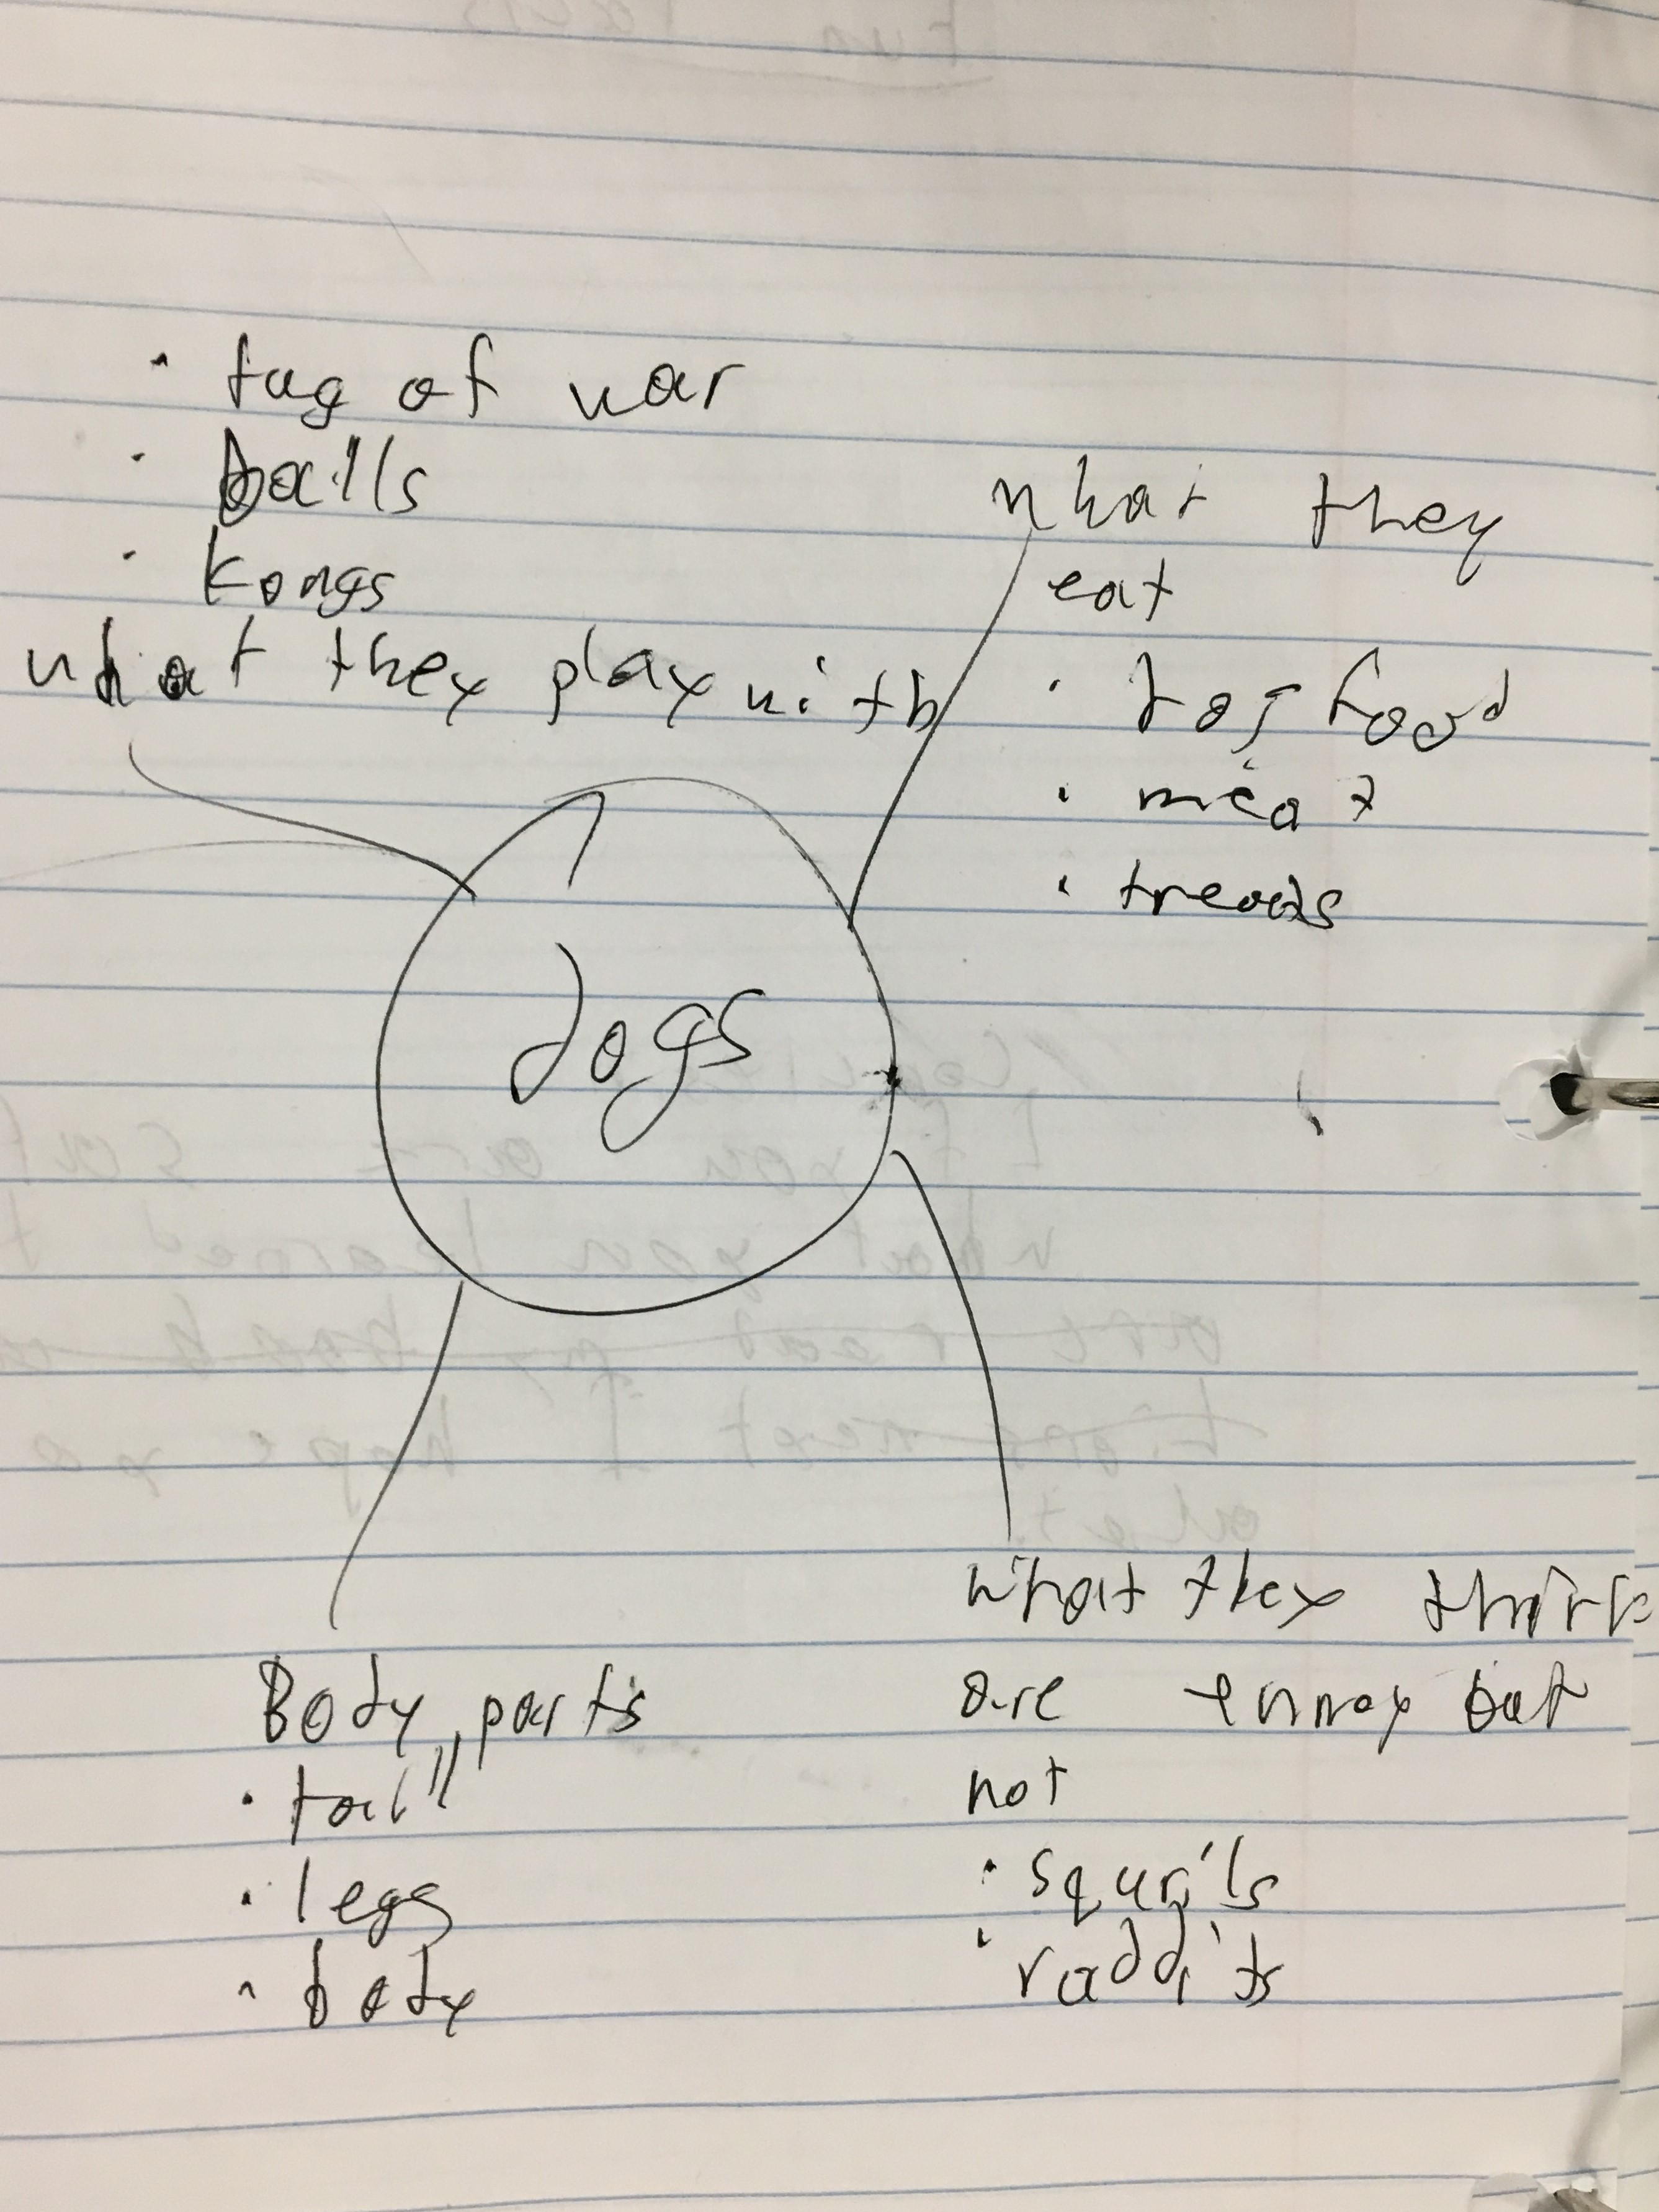 tug of war
balls
kongs
what they play with
what they
eat
dog food
meat
treats
dogs
Body parts
tail
legs
body
what they think
are ennmy but
not
squrils
raddits